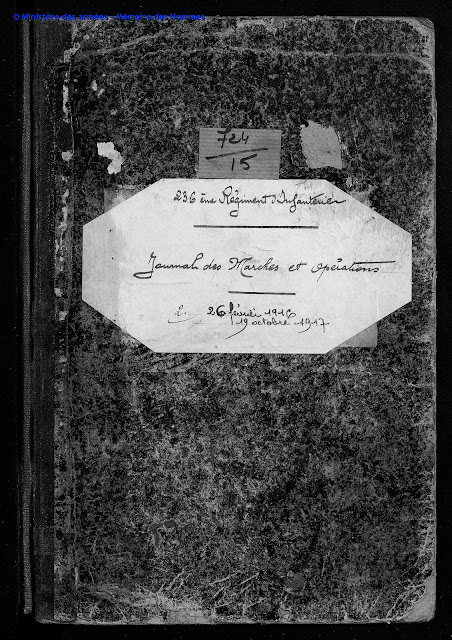 © Ministère des armées - Mémoire des Hommes
724
15
236 ème Régiment d'Infanterie
Journal des Marches et Opérations
26 février 1916
19 octobre 1917